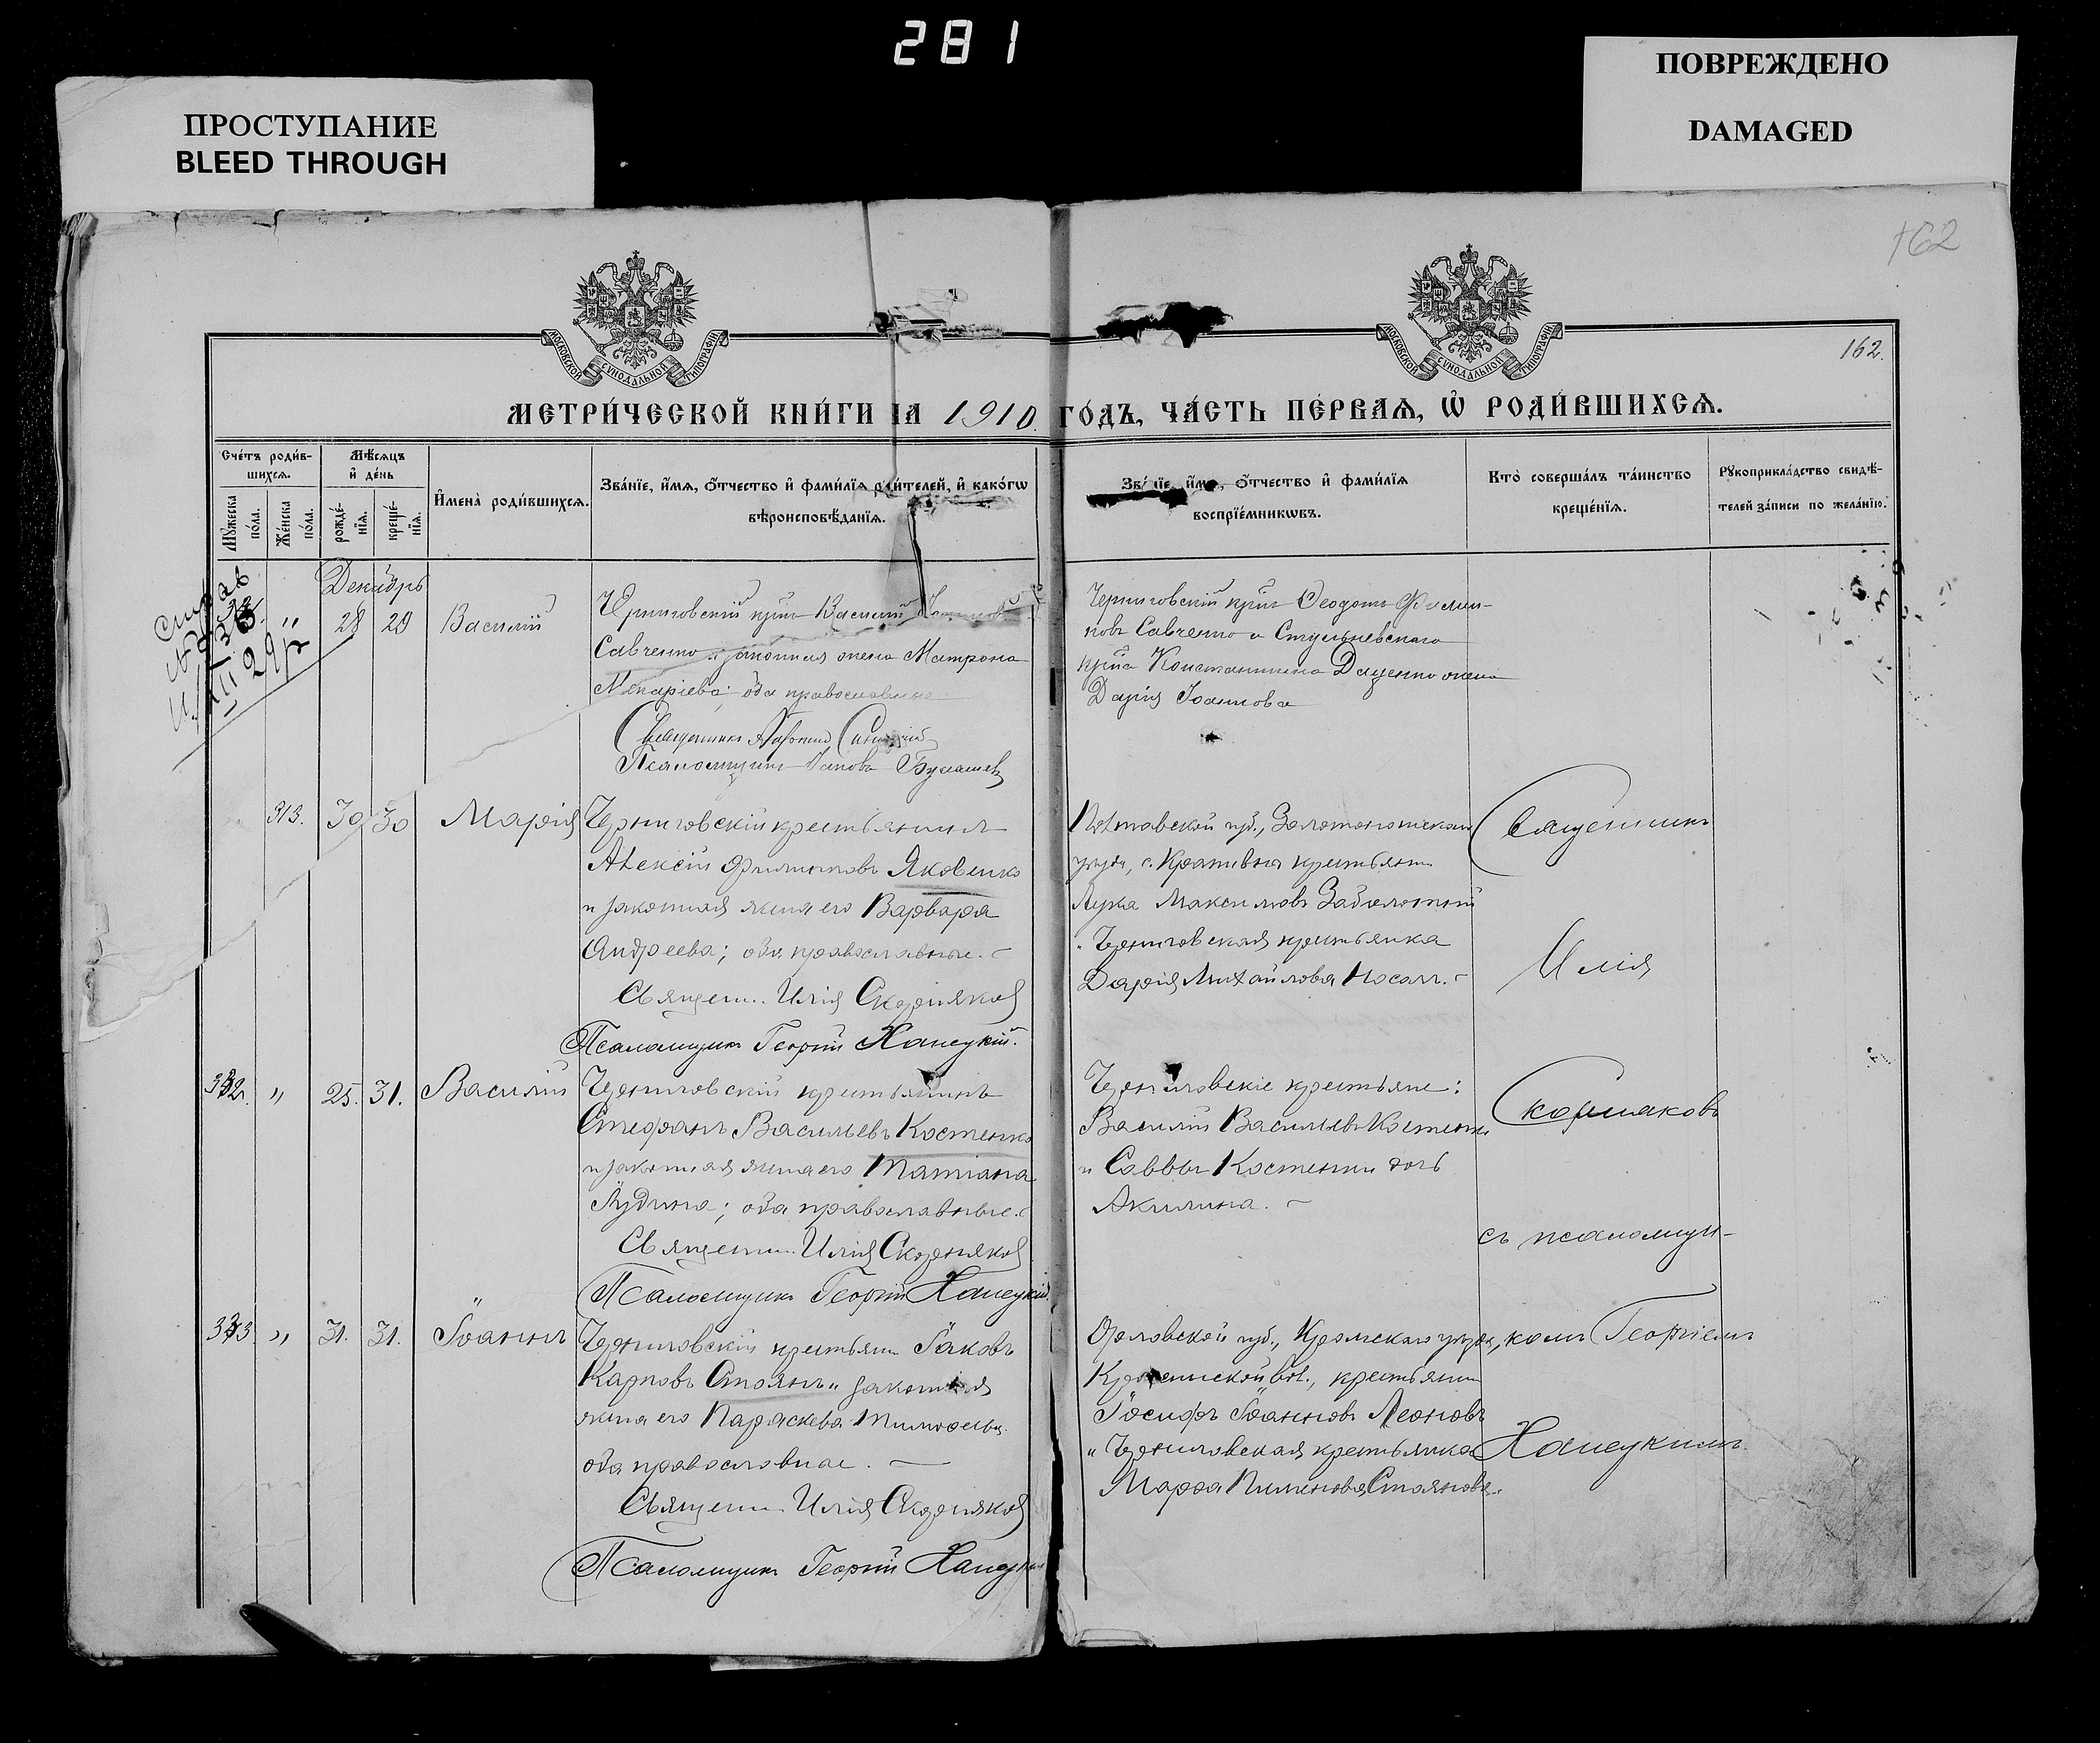 281
ПРОСТУПАНИЕ
BLEED THROUGH
ПОВРЕЖДЕНО
DAMAGED
162
162.
МОСКОВСКОЙ СѴНОДАЛЬНОЙ ТИПОГРАФІИ
МОСКОВСКОЙ СѴНОДАЛЬНОЙ ТИПОГРАФІИ
МЕТРИ́ЧЕСКОЙ КНИ́ГИ НА 1910 ГО́ДЪ, ЧА́СТЬ ПЕ́РВАѦ, Ѡ҆ РОДИ́ВШИХСѦ.
Сче́тъ роди́в-
шихсѧ.
Мѣ́сѧцъ
и҆ де́нь
Мꙋ́жеска
по́ла.
Же́нска
по́ла.
рожде́-
нїѧ.
креще́-
нїѧ.
И҆мена̀ роди́вшихсѧ.
Зва́нїе, и҆́мѧ, ѻ҆́тчество и҆ фами́лїѧ роди́телей, и҆ како́гѡ
вѣроисповѣ́данїѧ.
Зва́нїе, и҆́мѧ, ѻ҆́тчество и҆ фами́лїѧ
воспрїе́мникѡвъ.
Кто̀ соверша́лъ та́инство
креще́нїѧ.
Рꙋкоприкла́дство свидѣ́-
телей за́писи по жела́нїю.
Декабрь
„ 28 29 Василій
Черниговскій крин Василій
Савченко и законная жена Матрона
Макаріева; оба православные
Священникъ
Псаломщикъ
Черниговскій крин Ѳеодотъ Филип-
повъ Савченко и
крина Константина Даценко жена
Дарія Іоаннова
313. 30 30 Марія
Черниговскій крестьянинъ
Алексій Филиповъ Яковенко
и законная жена его Варвара
Андреева; оба православные.
Священ. Илія Скорняковъ
Псаломщикъ Георгій Ханецкій.
Полтавской губ., Золотоношскаго
уѣзда, с. Кропивна крестьянин
Лука Максимовъ Заболотный
и Черниговская крестьянка
Дарія Михайлова Носалъ.
332. „ 25. 31. Василій
Черниговскій крестьянинъ
Стефанъ Васильевъ Костенко
и законная жена его Татіана
оба православные.
Священ. Илія Скорняковъ
Псаломщикъ Георгій Ханецкій.
Черниговскіе крестьяне:
Василій Васильевъ Костенко
и Саввы Костенки дочь
Акилина.
333. „ 31. 31. Іоаннъ
Черниговскій крестьян. Іаковъ
Карповъ Стоянъ и законная
жена его Параскева Тимоѳеева
оба православные.
Священ. Илія Скорняковъ
Псаломщикъ Георгій Ханецкій
Орловской губ., Кромскаго уѣзда,
вол., крестьянин
Іосифъ Іоанновъ Леоновъ
и Черниговская крестьянка
Марфа Пименова Стоянова.
Священникъ
Илія
Скорняковъ
съ псаломщи-
комъ Георгіемъ
Ханецкимъ.